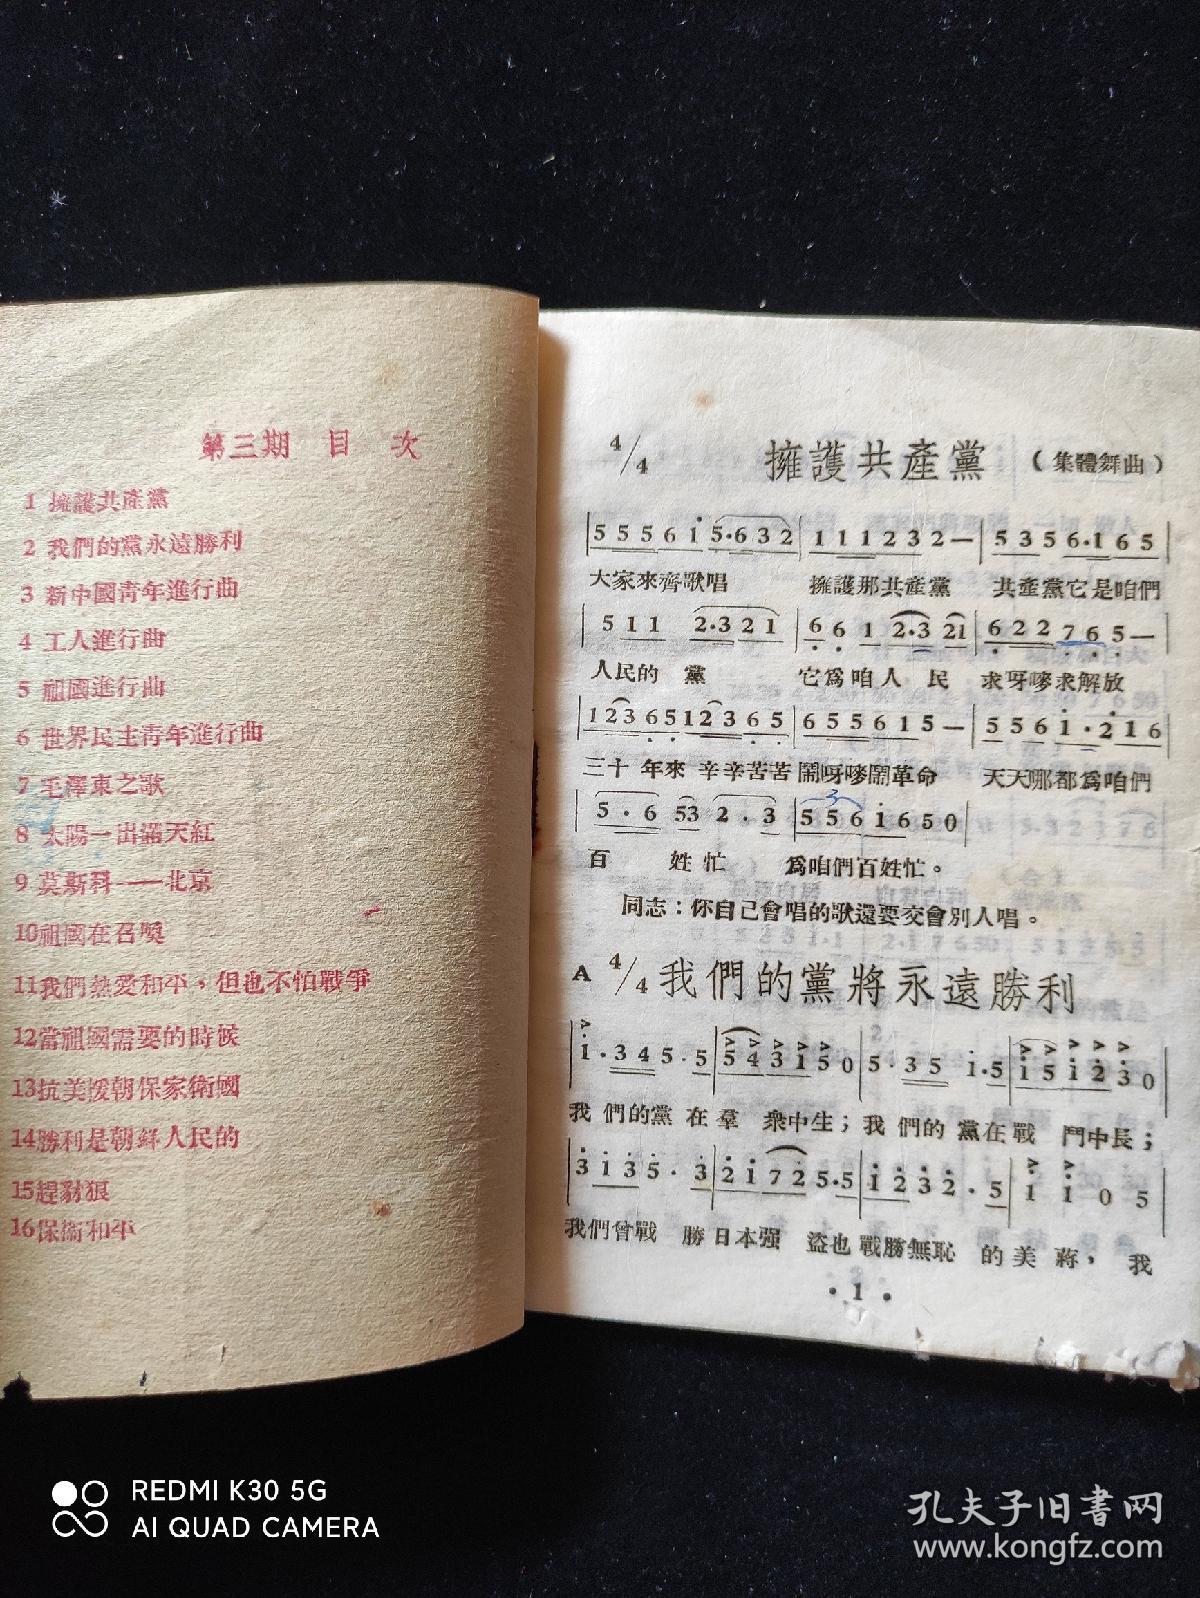 第三期 目 次
1 擁護共產黨
2 我們的黨永遠勝利
3 新中國青年進行曲
4 工人進行曲
5 祖國進行曲
6 世界民主青年進行曲
7 毛澤東之歌
8 太陽一出滿天紅
9 莫斯科——北京
10祖國在召喚
11我們熱愛和平，但也不怕戰爭
12當祖國需要的時候
13抗美援朝保家衛國
14勝利是朝鮮人民的
15趕豺狼
16保衛和平
4/4 擁護共產黨 （集體舞曲）
5 5 5 6 i 5·6 3 2 | 1 1 1 2 3 2 — | 5 3 5 6·1 6 5
大家來齊歌唱 擁護那共產黨 共產黨它是咱們
5 1 1 2·3 2 1 | 6 6 1 2·3 21 | 6 2 2 7 6 5 —
人民的 黨 它爲咱人 民 求呀嘛求解放
1 2 3 6 5 1 2 3 6 5 | 6 5 5 6 1 5 — | 5 5 6 i · 2 1 6
三十 年來 辛辛苦苦 鬧呀嘛鬧革命 天天哪都爲咱們
5 · 6 53 2 . 3 | 5 5 6 i 6 5 0
百 姓忙 爲咱們百姓忙。
同志：你自己會唱的歌還要交會別人唱。
A 4/4 我們的黨將永遠勝利
i · 3 4 5 · 5 | 5 4 3 1 5 0 | 5 · 3 5 i · 5 | i 5 i 2 3 0
我 們的黨 在 羣 衆中生；我 們的 黨在戰 鬥中長；
3 i 3 5 · 3 | 2 i 7 2 5·5 | i 2 3 2 · 5 | i i 0 5
我們曾戰 勝日本强 盜也戰勝無恥 的美 蔣， 我
· 1 ·
REDMI K30 5G
AI QUAD CAMERA
孔夫子旧书网
www.kongfz.com